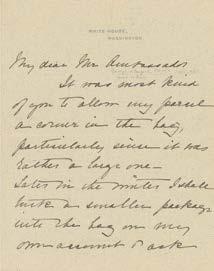 WHITE HOUSE,
WASHINGTON.
My dear Mr. Ambassador
It was most kind
of you to allow my parcel
a corner in the bag,
particularly since it was
rather a large one—
Later in the winter I shall
tuck a smaller package
into the bag on my
own account & ask